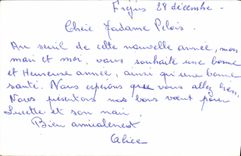 Fréjus 28 décembre -
Chère Madame Pelois.
Au seuil de cette nouvelle année, mon
mari et moi, vous souhaite une bonne
et Heureuse année, ainsi qu'une bonne
santé. Nous espérons que vous allez bien.
Nous présentons nos bons vœux pour
Lucette et son mari.
Bien amicalement
Alice